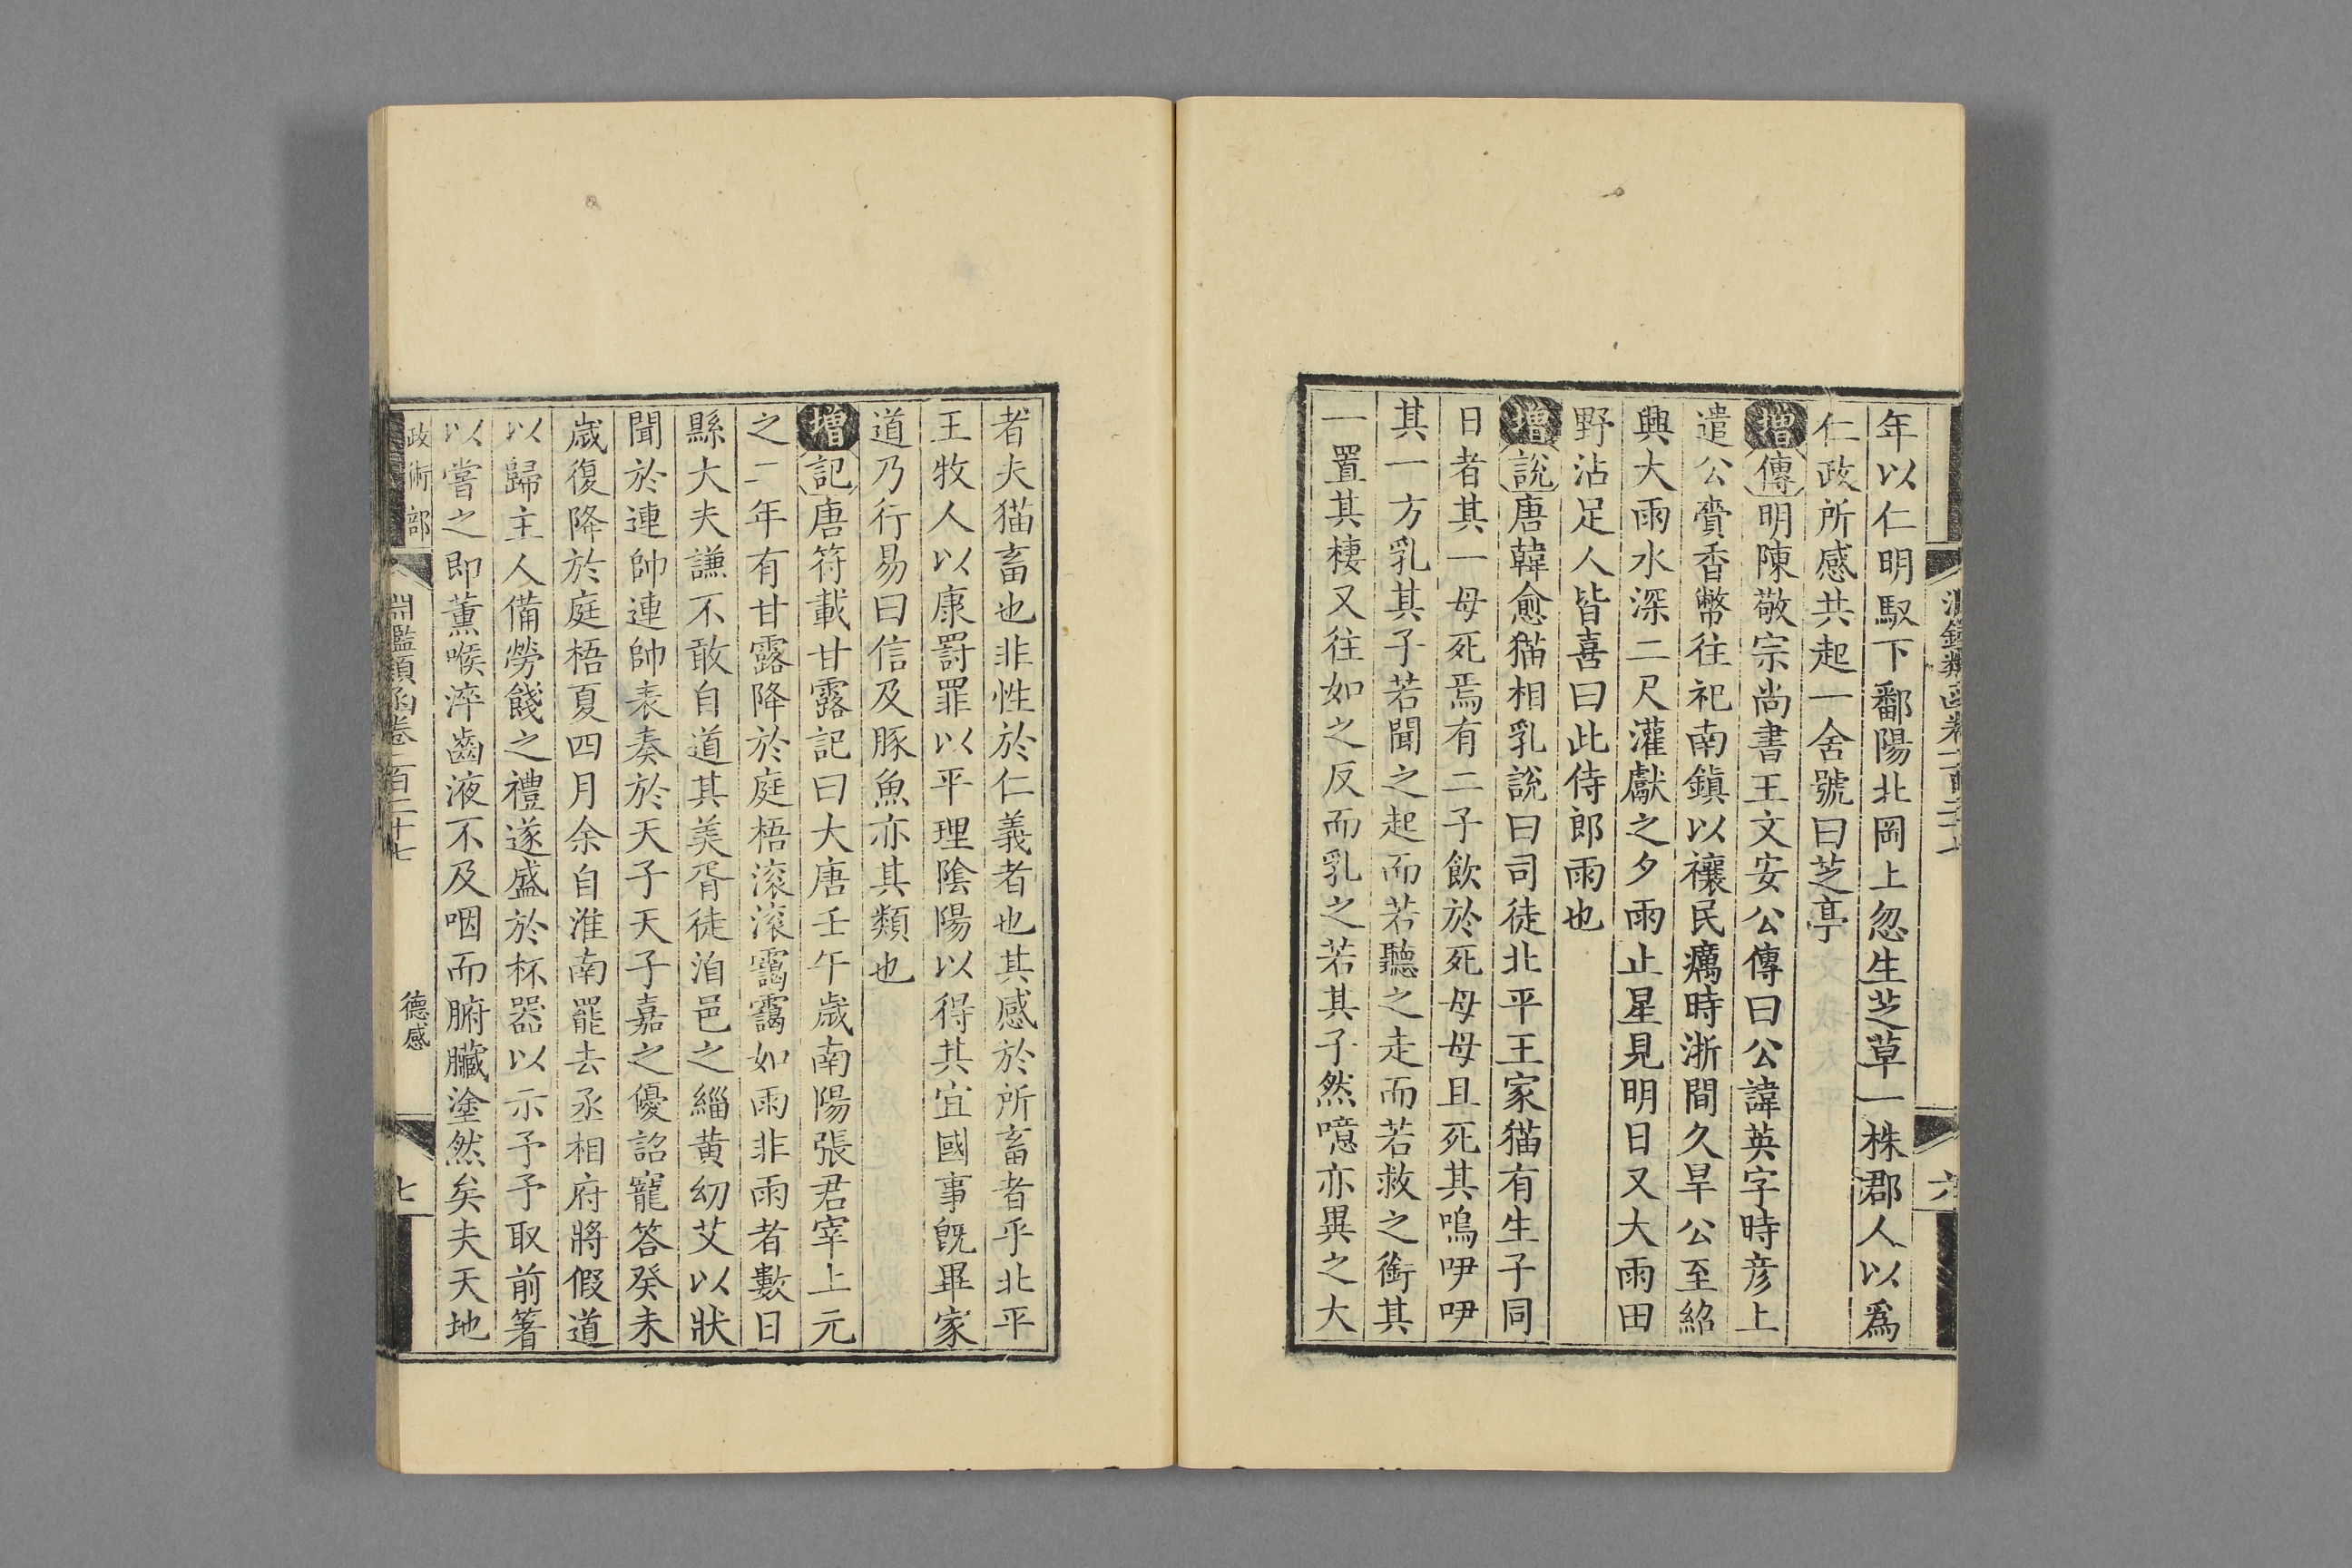 年以仁明馭下鄱陽北岡上忽生芝草一株郡人以爲
仁政所感共起一舍號曰芝亭
增傳明陳敬宗尚書王文安公傳曰公諱英字時彦上
遣公賫香幣往祀南鎮以禳民癘時浙間久旱公至紹
興大雨水深二尺灌獻之夕雨止星見明日又大雨田
野沾足人皆喜曰此侍郎雨也
增說唐韓愈猫相乳說曰司徒北平王家猫有生子同
日者其一母死焉有二子飲於死母母且死其鳴咿咿
其一方乳其子若聞之起而若聽之走而若救之銜其
一置其棲又往如之反而乳之若其子然噫亦異之大
者夫猫畜也非性於仁義者也其感於所畜者乎北平
王牧人以康罰罪以平理陰陽以得其宜國事旣畢家
道乃行易曰信及豚魚亦其類也
增記唐符載甘露記曰大唐壬午歲南陽張君宰上元
之二年有甘露降於庭梧滾滾靄靄如雨非雨者數日
縣大夫謙不敢自道其美胥徒洎邑之緇黄幼艾以狀
聞於連帥連帥表奏於天子天子嘉之優詔寵答癸未
歲復降於庭梧夏四月余自淮南罷去丞相府將假道
以歸主人備勞餞之禮遂盛於杯器以示予予取前箸
以嘗之即薰喉淬齒液不及咽而腑臟塗然矣夫天地
政術部
淵鑑類函卷一百二十七
德感
七
六